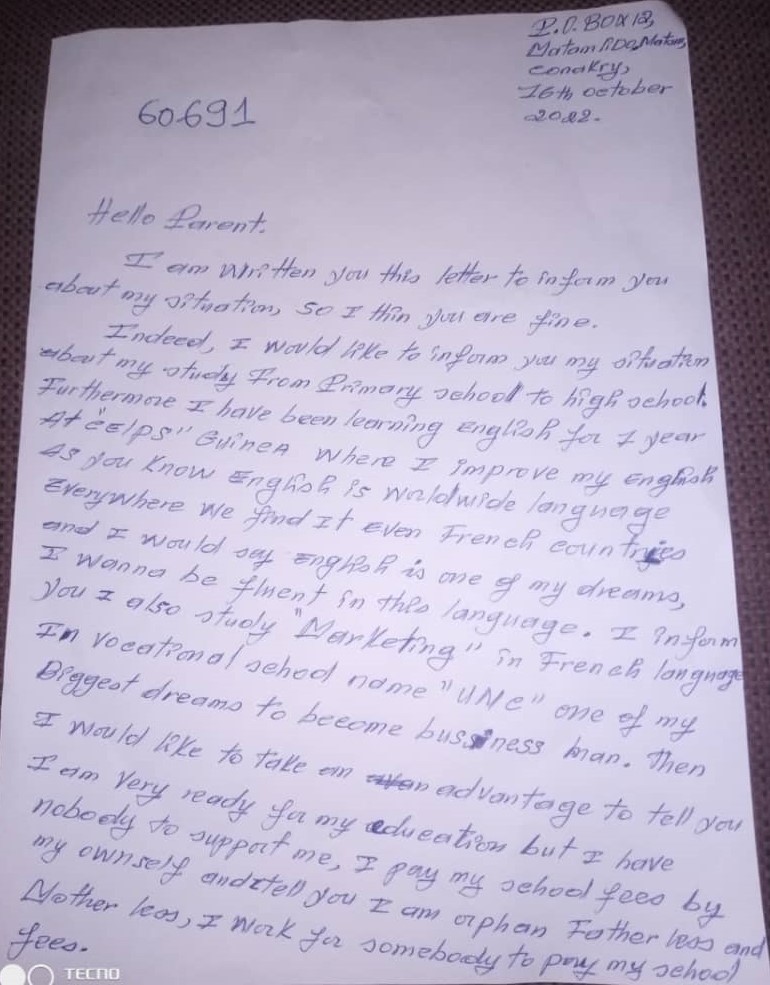 P.O. BOX 12,
Matam
Conakry,
16th october
2022.
60691
Hello Parent.
I am written you this letter to inform you
about my situation, so I thin you are fine.
Indeed, I would like to inform you my situation
about my study From Primary school to high school.
Furthermore I have been learning english for 1 year
At "eelps" Guinea where I improve my english
As you know english is worldwide language
everywhere we find It even French countries
and I would say english is one of my dreams,
I wanna be fluent in this language. I inform
you I also study "Marketing" in French language
In vocational school name "UNC" one of my
Biggest dreams to become bussiness man. Then
I would like to take an advantage to tell you
I am very ready for my education but I have
nobody to support me, I pay my school fees by
my ownself and tell you I am orphan Father less and
Mother less, I work for somebody to pay my school
fees.
TECNO